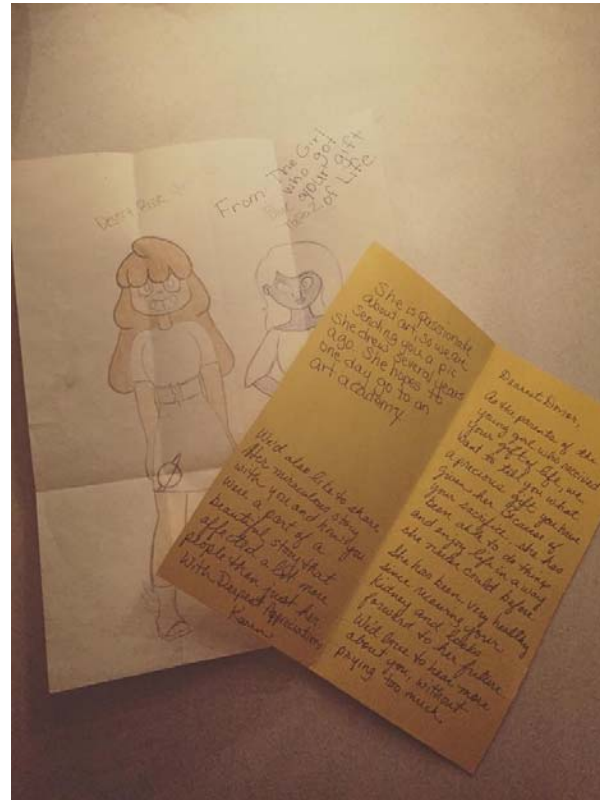 From The Girl
who got
your gift
of Life
She is passionate
about art, so we are
sending you a pic
she drew several years
ago. She hopes to
one day go to an
art academy.
We'd also like to share
her miraculous story
with you and how you
were a part of a
beautiful story that
affected a lot more
people then just her.
With Deepest Appreciation,
Karin
Dearest Donor,
As the parents of the
young girl who received
your gift of life, we
want to tell you what
a precious gift you have
given her. Because of
your sacrifice she has
been able to do things
and enjoy life in a way
she never could before.
She has been very healthy
since receiving your
kidney and looks
forward to her future
We'd love to hear more
about you, without
prying too much.